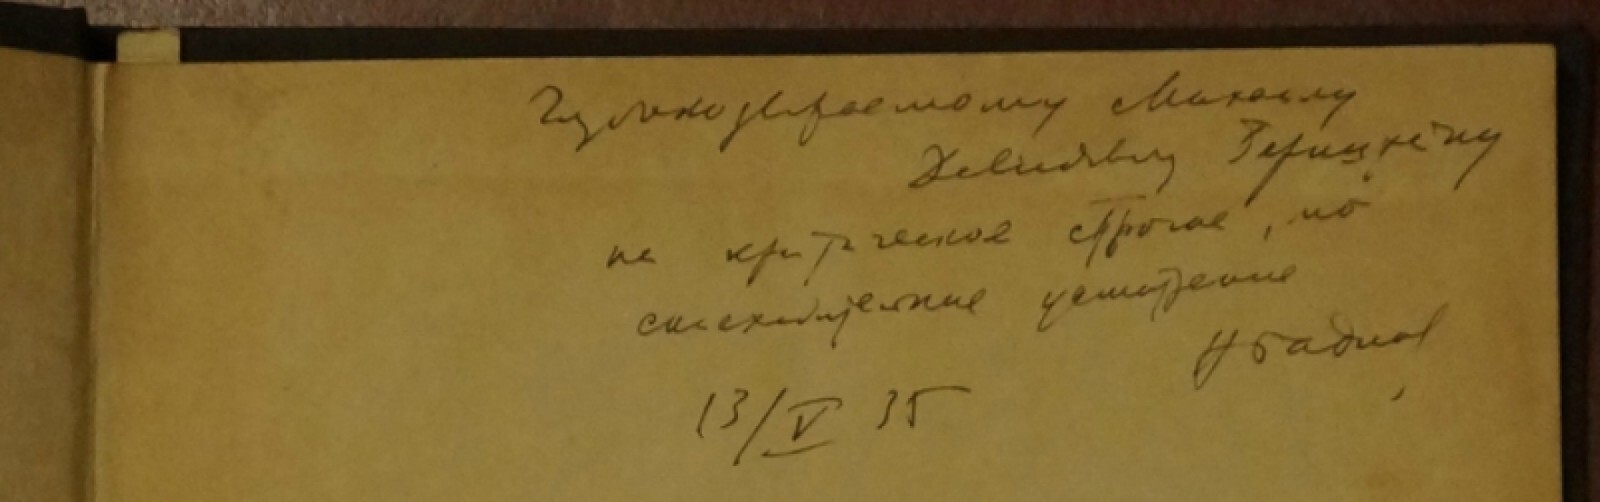 Глубокоуважаемому Михаилу
Давидовичу
на критическое строгое, но
снисходительное усмотрение
13/V 35